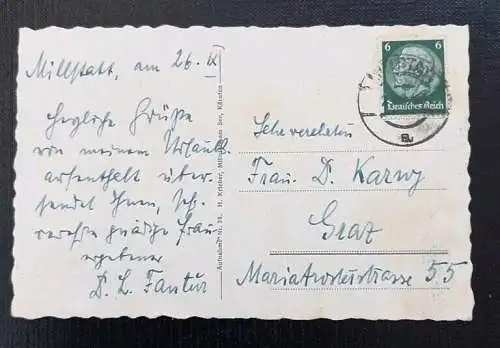 Millstatt, am 26. IX
Herzliche Grüße
von meinem Urlaubs
aufenthalt über-
sendet Ihnen, sehr
verehrte gnädige Frau
ergebener
D. L. Fantur
Aufnahme Nr. H. Kricher, Millstatt am See, Kärnten
6 6
Deutsches Reich
Sehr verehrten
Frau D. Karny
Graz
Mariatrosterstrasse 55